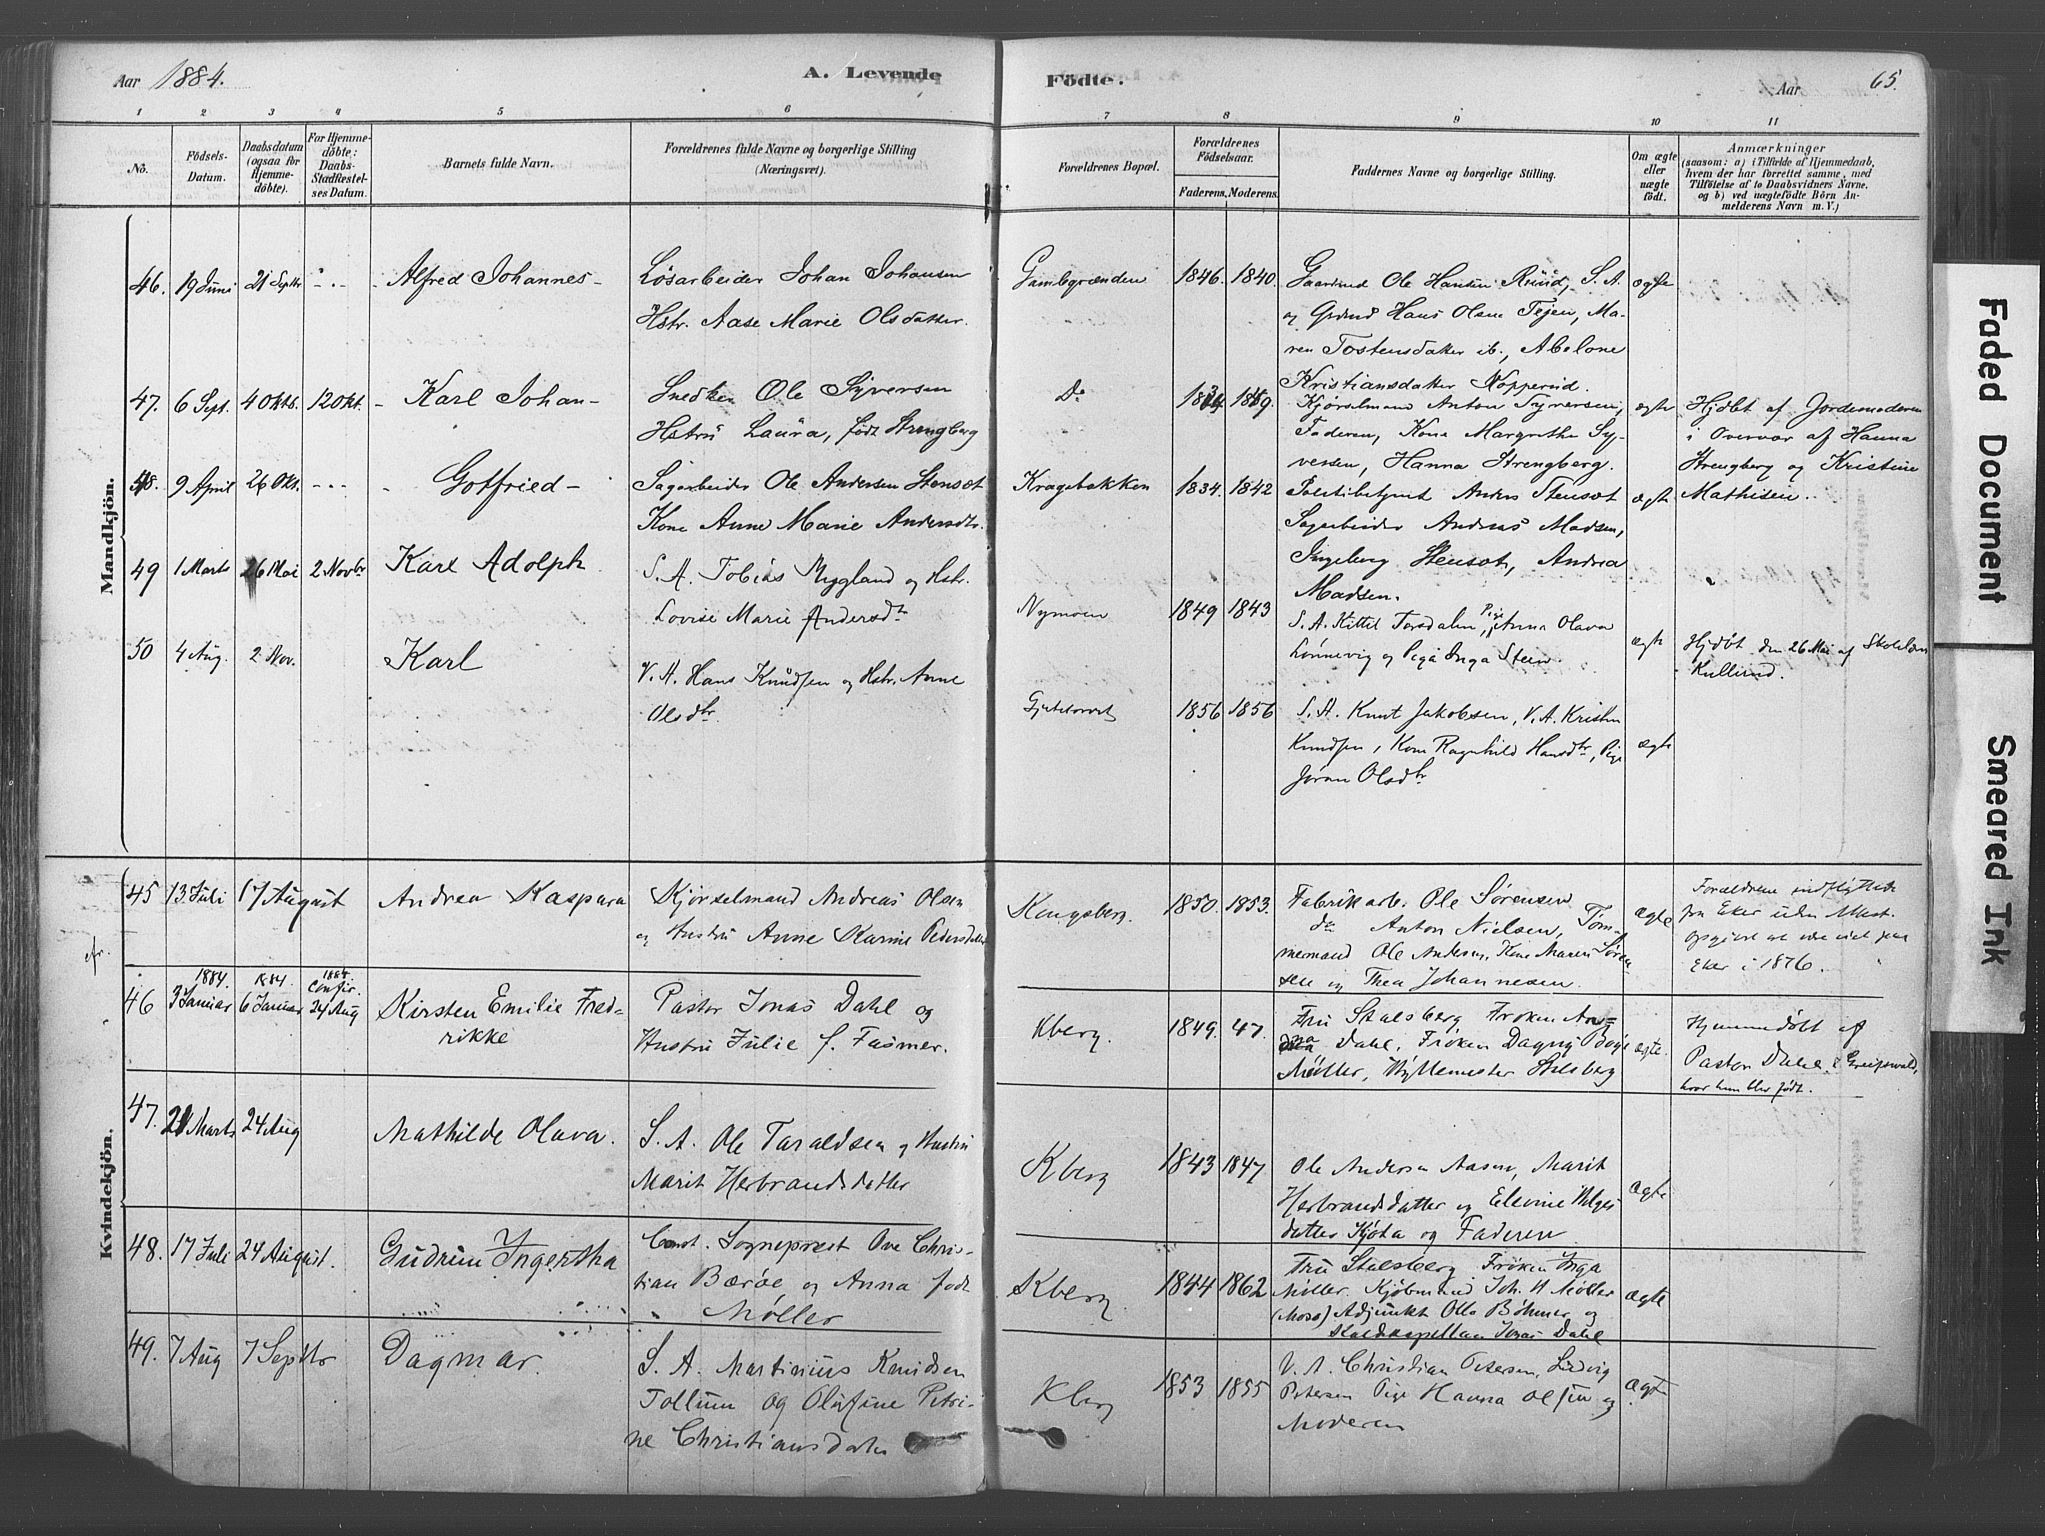 Aar 1884.
A. Levende
Födte.
Aar
65.
1 2 3 4 5 6 7 8 9 10 11
No.
Födsels-
Datum.
Daabsdatum
(ogsaa for
Hjemme-
döbte).
For Hjemme-
döbte:
Daabs-
Stadfæstel-
ses Datum.
Barnets fulde Navn.
Forældrenes fulde Navne og borgerlige Stilling
(Næringsvei).
Forældrenes Bopæl.
Forældrenes
Födselsaar.
Faderens. Moderens.
Faddernes Navne og borgerlige Stilling.
Om ægte
eller
uægte
födt.
Anmærkninger
(saasom: a) i Tilfælde af Hjemmedaab,
hvem der har forrettet samme, med
Tilföielse af to Daabsvidners Navne,
og b) ved uægtefödte Börn An-
melderens Navn m. V.)
Mandkjön.
46. 19 Juni 21 Septbr
Alfred Johannes
Løsarbeider Johan Johansen
Hstr. Aase Marie Olsdatter.
Gamlegrænden
1846. 1840.
Gaardmd Ole Hansen Ruud, S. A.
og Grdmd Hans Olsen Tejen, Ma-
ren Tostensdatter ib., Abelone
Kristiansdatter Nopperud.
ægte
47. 6 Sept. 4 Oktb. 12 Okt.
Karl Johan
Snedker Ole Syversen
Hstru Laura, født Strengberg
Do
Kjørselmand Anton Syversen,
Faderen, Kone Margrethe Sy-
versen, Hanna Strengberg.
ægte
Hjdbt af Jordemoderen
i Overvær af Hanna
Strengberg og Kristine
Mathisen.
48. 9 April 26 Okt.
Gotfried
Sagarbeider Ole Andersen Stensot
Kone Anne Marie Andersdtr.
Kragebakken
1834. 1842
Politibetjent Anders Stensot
Sagarbeider Andreas Madsen,
Ingeborg Stensot, Andrea
Madsen.
ægte
49 1 Marts 26 Mai 2 Novbr
Karl Adolph
S. A. Tobias Nygland og Hstr.
Lovise Marie Andersdtr
Nymoen
1849 1843
S. A. Kittil Torsdalen, Pige Anna Olava
Lønnevig og Pige Inga Steen.
ægte
Hjdøt den 26 Mai af Skolelær
Kullerud.
50 4 Aug. 2 Nov.
Karl
V. A. Hans Knudsen og Hstr. Anne
Olsdtr
1856 1856
S. A. Knut Jakobsen, V. A. Kristen
Knudsen, Kone Ragnhild Hansdtr, Pige
Jøran Olsdtr
ægte
Kvindekjön.
45 13 Juli 17 August
Andrea Kaspara
Kjørselmand Andreas Olsen
og Hustru Anne Karine Pedersdatter
Kongsberg.
1850. 1853.
Fabrikarb. Ole Sørensen
do Anton Nielsen, Tøm-
mermand Ole Andersen, Kone Maren Søren-
sen og Thea Johannesen.
ægte
Forældrene indflyttede
fra Eker uden Attest.
Opgivet at være viet paa
Eker i 1876.
46 1884. 3 Januar 1884. 6 Januar 1884. confir. 24 Aug
Kirsten Emilie Fred-
rikke
Pastor Jonas Dahl og
Hustru Julie f. Fasmer.
Kberg.
1849. 47.
Fru Stalsberg Frøken An-
na Dahl, Frøken Dagny Borge
Møller, Hyttemester Stalsberg
ægte.
Hjemmedøbt af
Pastor Dahl i Greifswald,
hvor hun blev født.
47. 21 Marts 24 Aug
Mathilde Olava.
S. A. Ole Taraldsen og Hustru
Marit Herbrandsdatter
Kberg
1843 1847
Ole Andersen Aasen, Marit
Herbrandsdatter og Elevine Helges
datter Kjøta og Faderen.
ægte
48. 17 Juli 24 August.
Gudrun Ingertha
Const. Sogneprest Ove Chris-
tian Bærøe og Anna født
Møller
Kberg.
1844 1862
Fru Stalsberg Frøken Inga
Møller. Kjøbmand Joh. H Møller
(Moss) Adjunkt Olla Böhmer og
Stedskapellan Jonas Dahl
ægte
49. 7 Aug 7 Septbr
Dagmar.
S. A. Martinius Knudsen
Tollum og Olufine Petri-
ne Christiansdatter
Kberg
1853 1855
V. A. Christian Petersen, Ludvig
Petersen Pige Hanna Olsen og
Moderen
ægt.
Faded Document
Smeared Ink